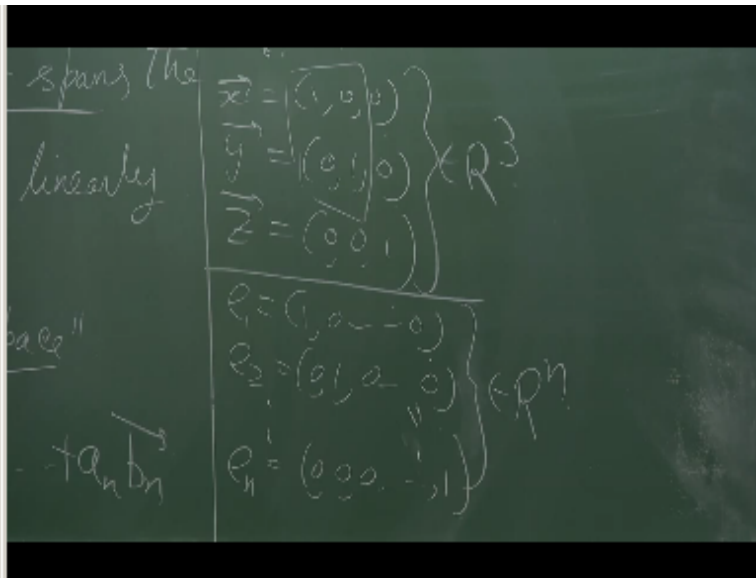 spans the
linearly
space"
- - + a_n b_n
x = (1, 0, 0)
y = (0, 1, 0)
z = (0, 0, 1)
∈ R^3
e_1 = (1, 0 - - - 0)
e_2 = (0, 1, 0 - - , 0)
e_n = (0, 0, 0, - - , 1)
∈ R^n